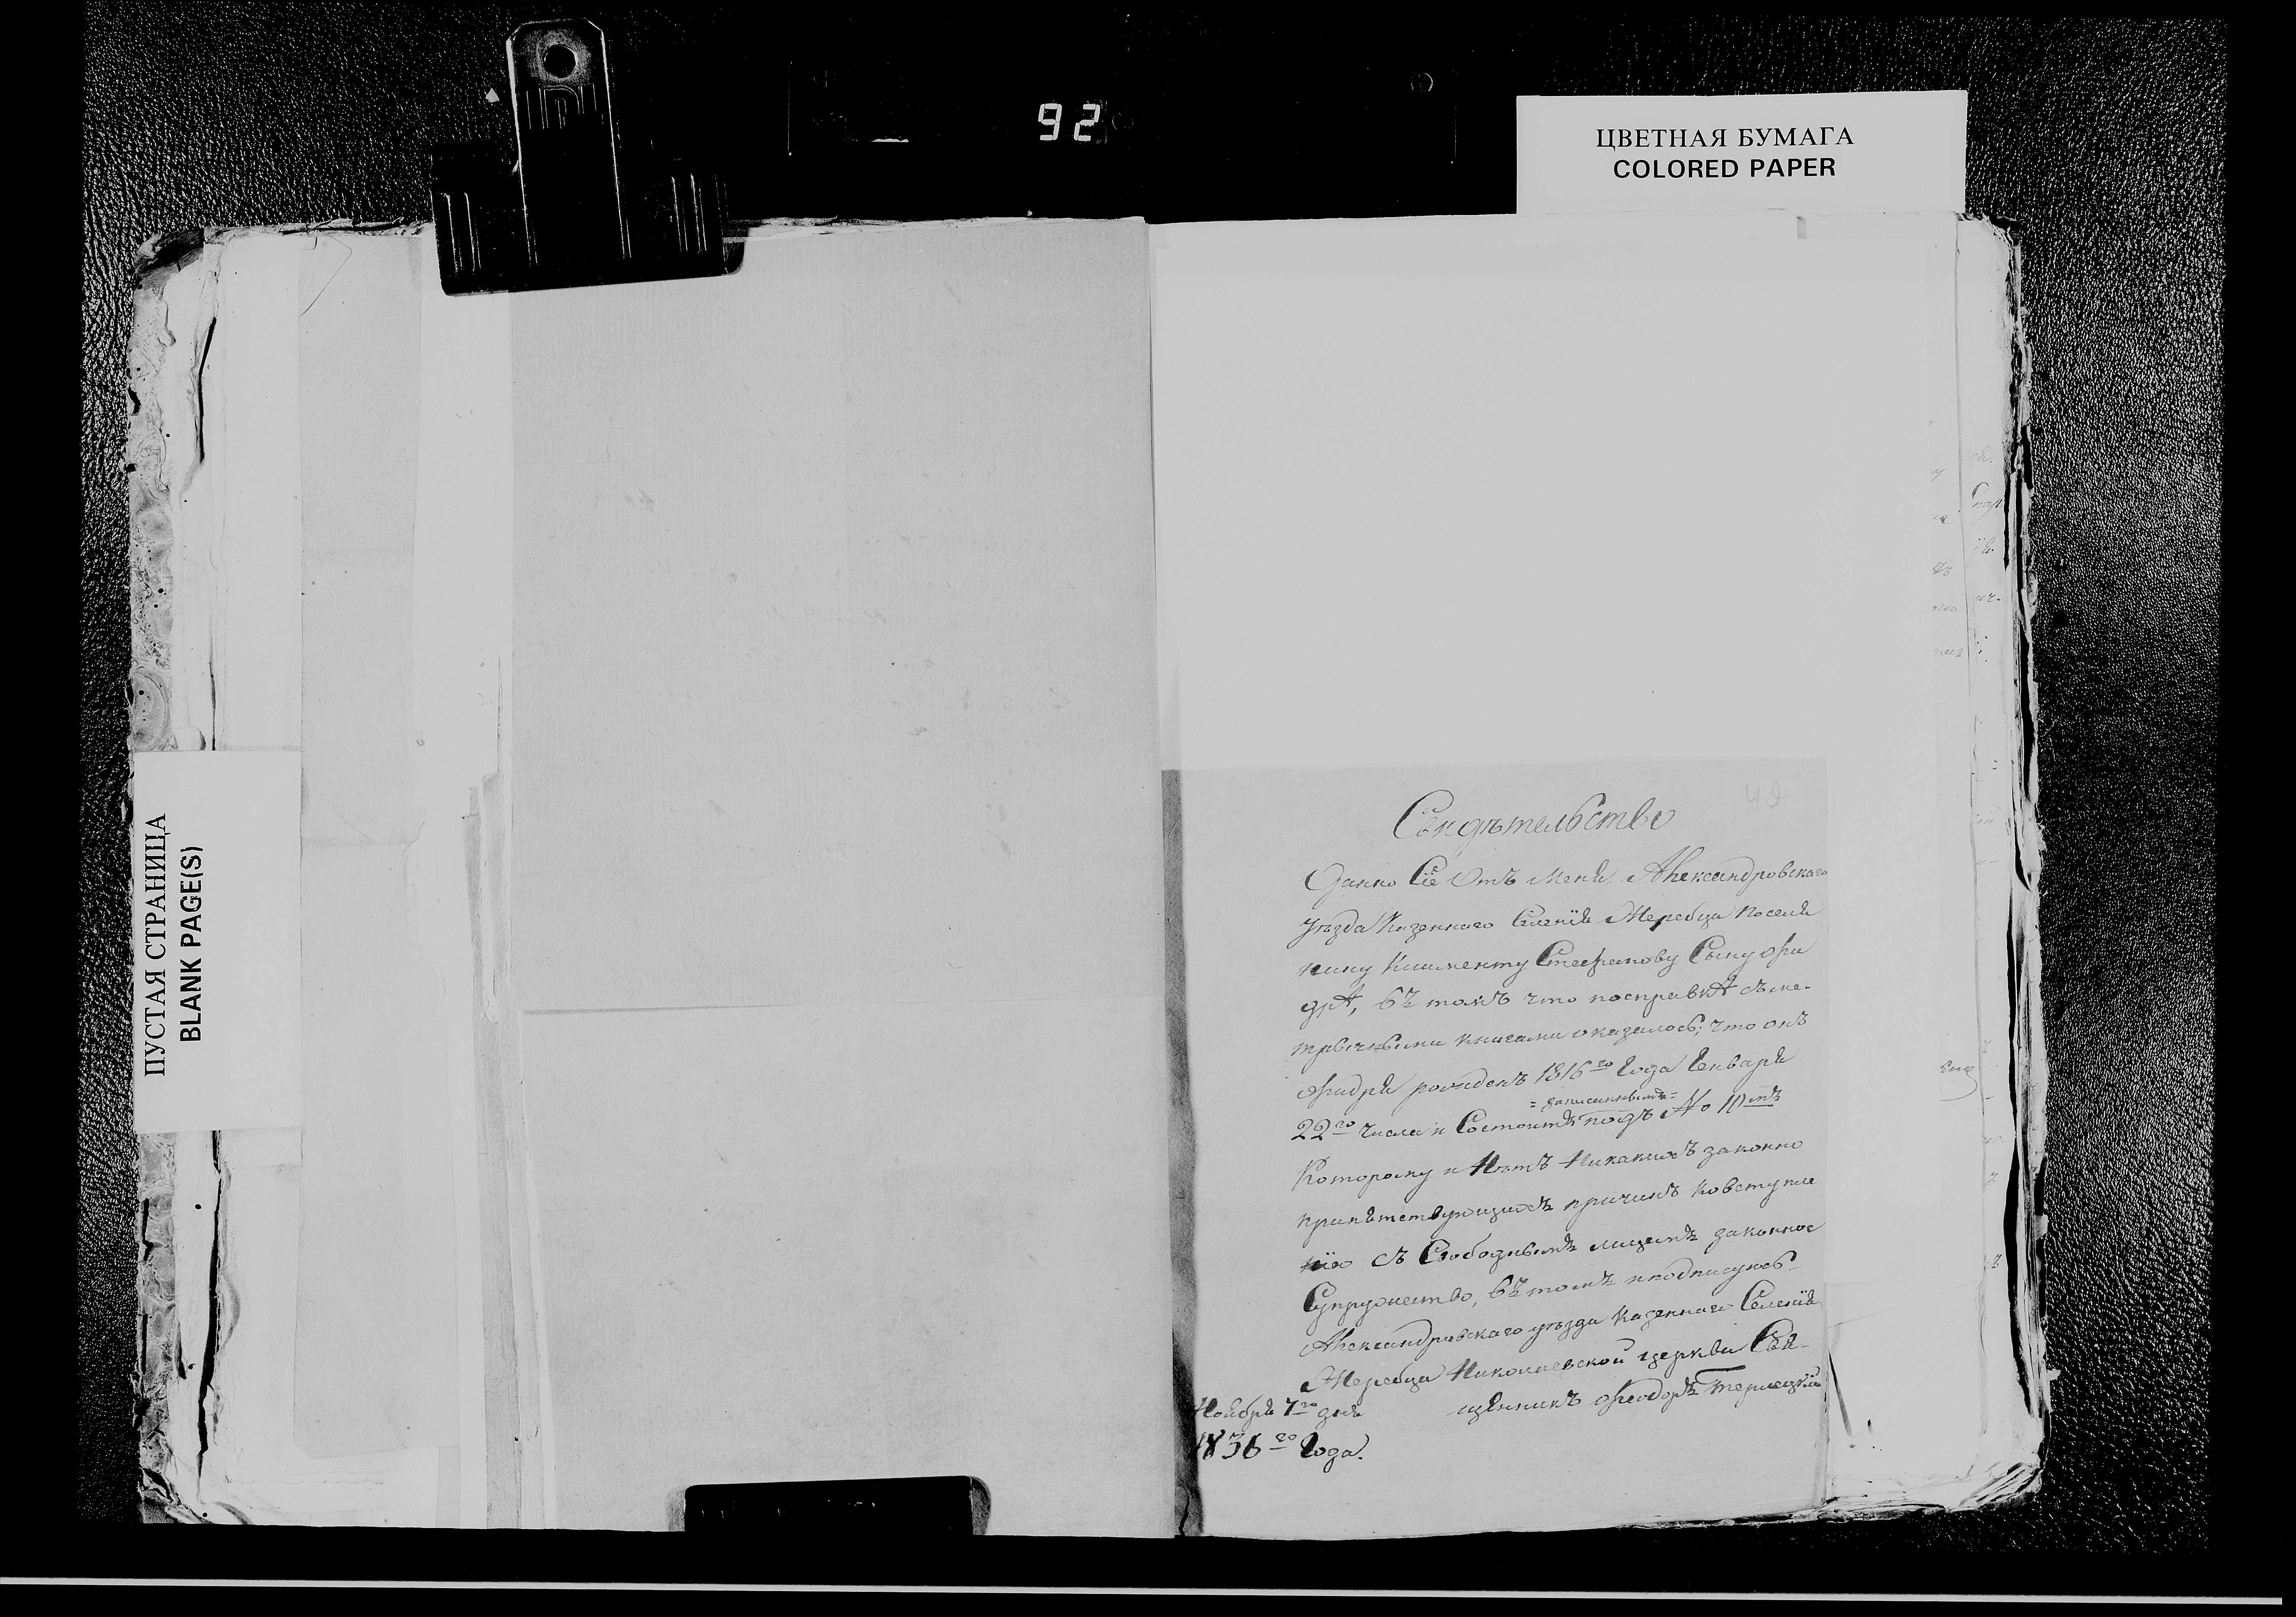 92
ЦВЕТНАЯ БУМАГА
COLORED PAPER
ПУСТАЯ СТРАНИЦА
BLANK PAGE(S)
Свидѣтельство
Дано Сіе Отъ Меня Александровскаго
уѣзда Казеннаго Селенія Жеребца поселя
нину Клименту Стефанову Сыну Фи
дрѣ, въ томъ что посправкѣ съме-
трическими книгами оказалось; что онъ
Фидря рожденъ 1816го Года Генваря
=записаннымъ=
22го числа и Состоитъ подъ No 10мъ
Которому и Нѣтъ Никакихъ законно
препятствующихъ причинъ ковступле
нію съ Свободнымъ лицемъ законное
Супружество, въ томъ и подписуюсь
Александровскаго уѣзда Казеннаго Селенія
Жеребца Николаевской церкви Свя-
щенникъ Феодоръ Терлецкій
Ноября 7го дня
1836го Года.